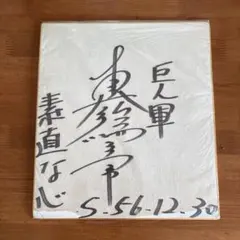 巨人軍
素直な心
S.56.12.30